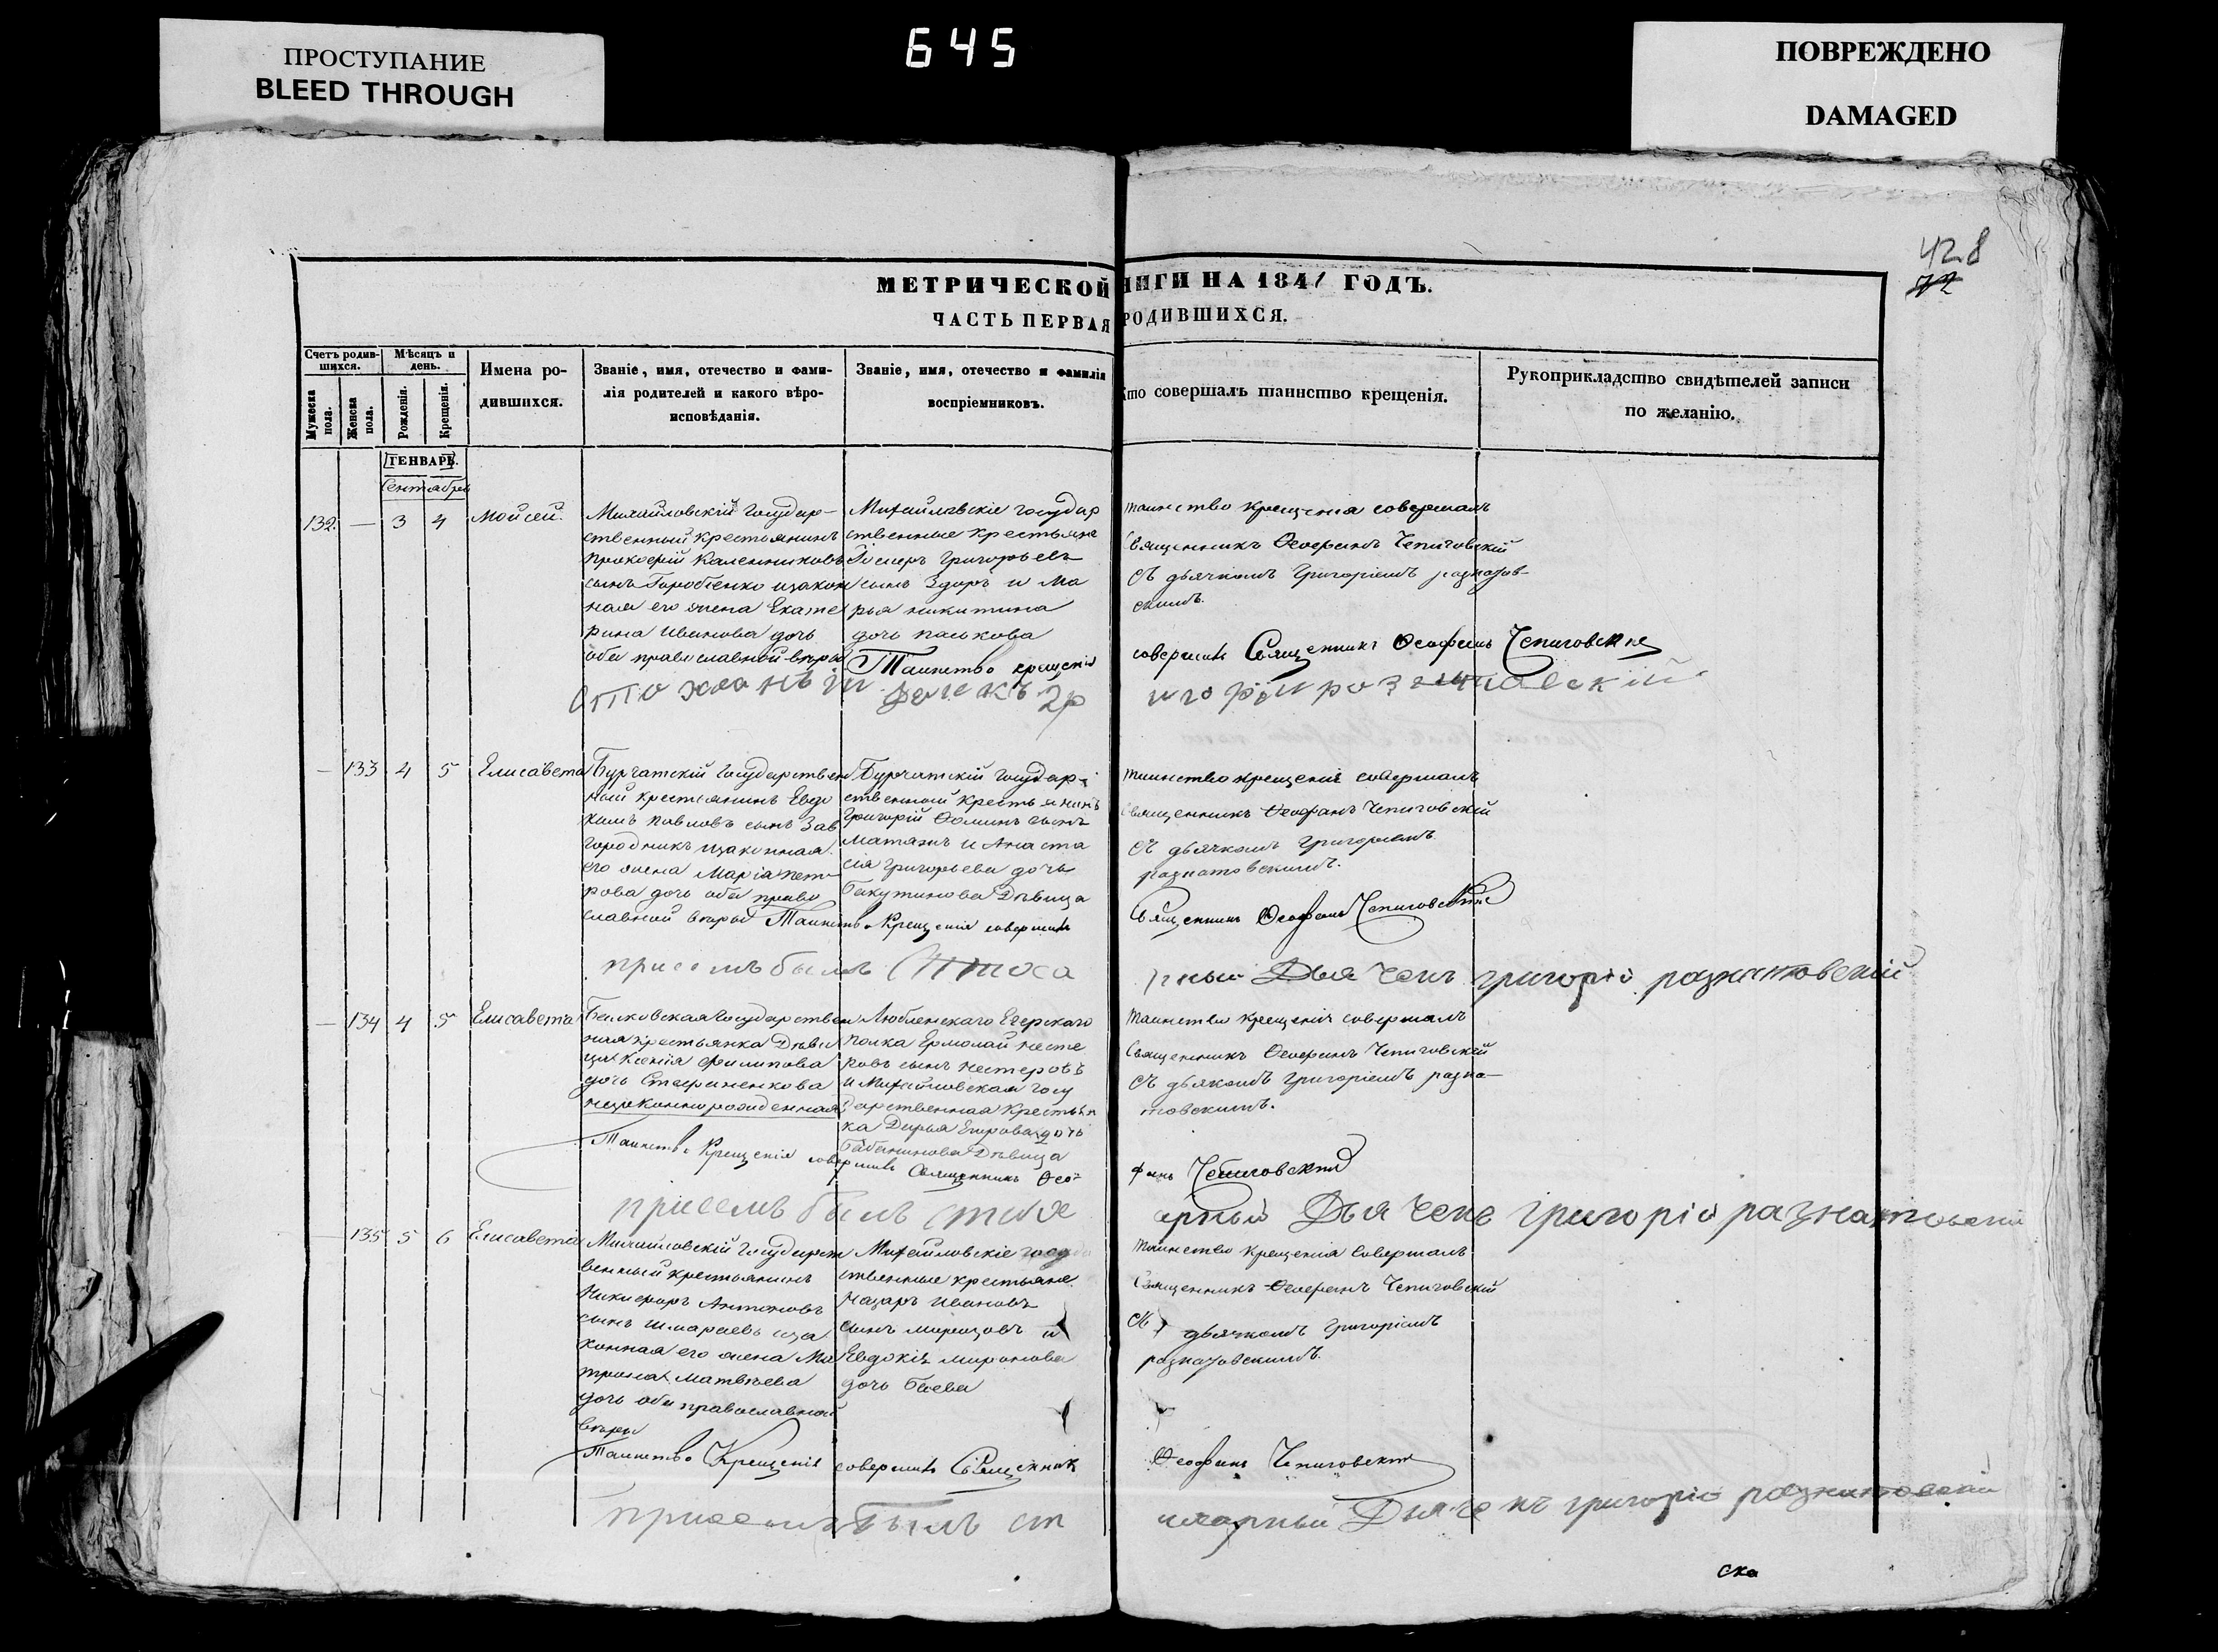 ПРОСТУПАНИЕ
BLEED THROUGH
645
ПОВРЕЖДЕНО
DAMAGED
428
72
МЕТРИЧЕСКОЙ НИГИ НА 1841 ГОДЪ.
ЧАСТЬ ПЕРВАЯ РОДИВШИХСЯ.
Счетъ родив-
шихся.
Мужеска пола.
Женска пола.
Мѣсяцъ и
день.
Рожденія.
Крещенія.
Имена ро-
дившихся.
Званіе, имя, отечество и фами-
лія родителей и какого вѣро-
исповѣданія.
Званіе, имя, отечество и фамилія
воспріемниковъ.
Кто совершалъ таинство крещенія.
Рукоприкладство свидѣтелей записи
по желанію.
ГЕНВАРЬ.
Сентябрь
132. — 3 4 Мойсей.
Михайловскій государ-
ственный крестьянинъ
Прокофій
сынъ Горобченко изакон
ная его жена Екате
рина Иванова дочь
оба православной вѣры
Михайловскіе государ
ственные крестьяне
Григорьевъ
сынъ Здоръ и Ма
рья никитина
дочь паскова
Таинство крещенія
таинство крещенія совершалъ
Священникъ Ѳеофанъ Чепиговскій
Съ дьячкомъ Григоріемъ разнатов-
скимъ.
совершилъ Священникъ Ѳеофанъ Чепиговскій
— 133 4 5 Елисавета
Бурчатскій государствен
ный крестьянинъ Евдо
кимъ павловъ сынъ Зав
городникъ изаконная
его жена Марія пет
рова дочь оба право
славной вѣры Таинство Крещенія совершилъ
Бурчатскій государ
ственный крестьянинъ
Григорій Ѳоминъ сынъ
Матяхъ и Анаста
сія григорьева дочь
бакутинова Дѣвица
таинство крещенія совершалъ
священникъ Ѳеофанъ Чепиговскій
Съ дьячкомъ Григоріемъ
разнатовскимъ.
Священникъ Ѳеофанъ Чепиговскій
присемъ былъ
Дьячекъ григорій разнатовскій
— 134 4 5 Елисавета
Государствен
ная крестьянка Дѣви
ца Ксенія филипова
дочь Стефаненкова
незаконнорожденная
Люблинскаго Егерскаго
полка Ермолай несте
ровъ сынъ нестеровъ
и Михайловская госу
дарственная крестьян
ка Дарья Егорова дочь
Бабанинова Дѣвица
Таинство Крещенія совершилъ Священникъ Ѳео
Таинство крещенія совершалъ
Священникъ Ѳеофанъ Чепиговскій
Съ дьякомъ Григоріемъ разна-
товскимъ.
фанъ Чепиговскій
присемъ былъ
Дьячекъ григорій разнатовскій
— 135 5 6 Елисавета
Михайловскій государст
венный крестьянинъ
Никифоръ Антоновъ
сынъ Шмараевъ иза
конная его жена Ма
трона Матвѣева
дочь оба православной
вѣры
Михайловскіе госуда
ственные крестьяне
Назаръ Ивановъ
сынъ и
Евдокія миронова
дочь Баева
Таинство крещенія совершалъ
Священникъ Ѳеофанъ Чепиговскій
Съ дьячкомъ Григоріемъ
разнатовскимъ.
Таинство Крещенія совершилъ Священникъ
Ѳеофанъ Чепиговскій
присемъ былъ
Дьячекъ григорій разнатовскій
ска